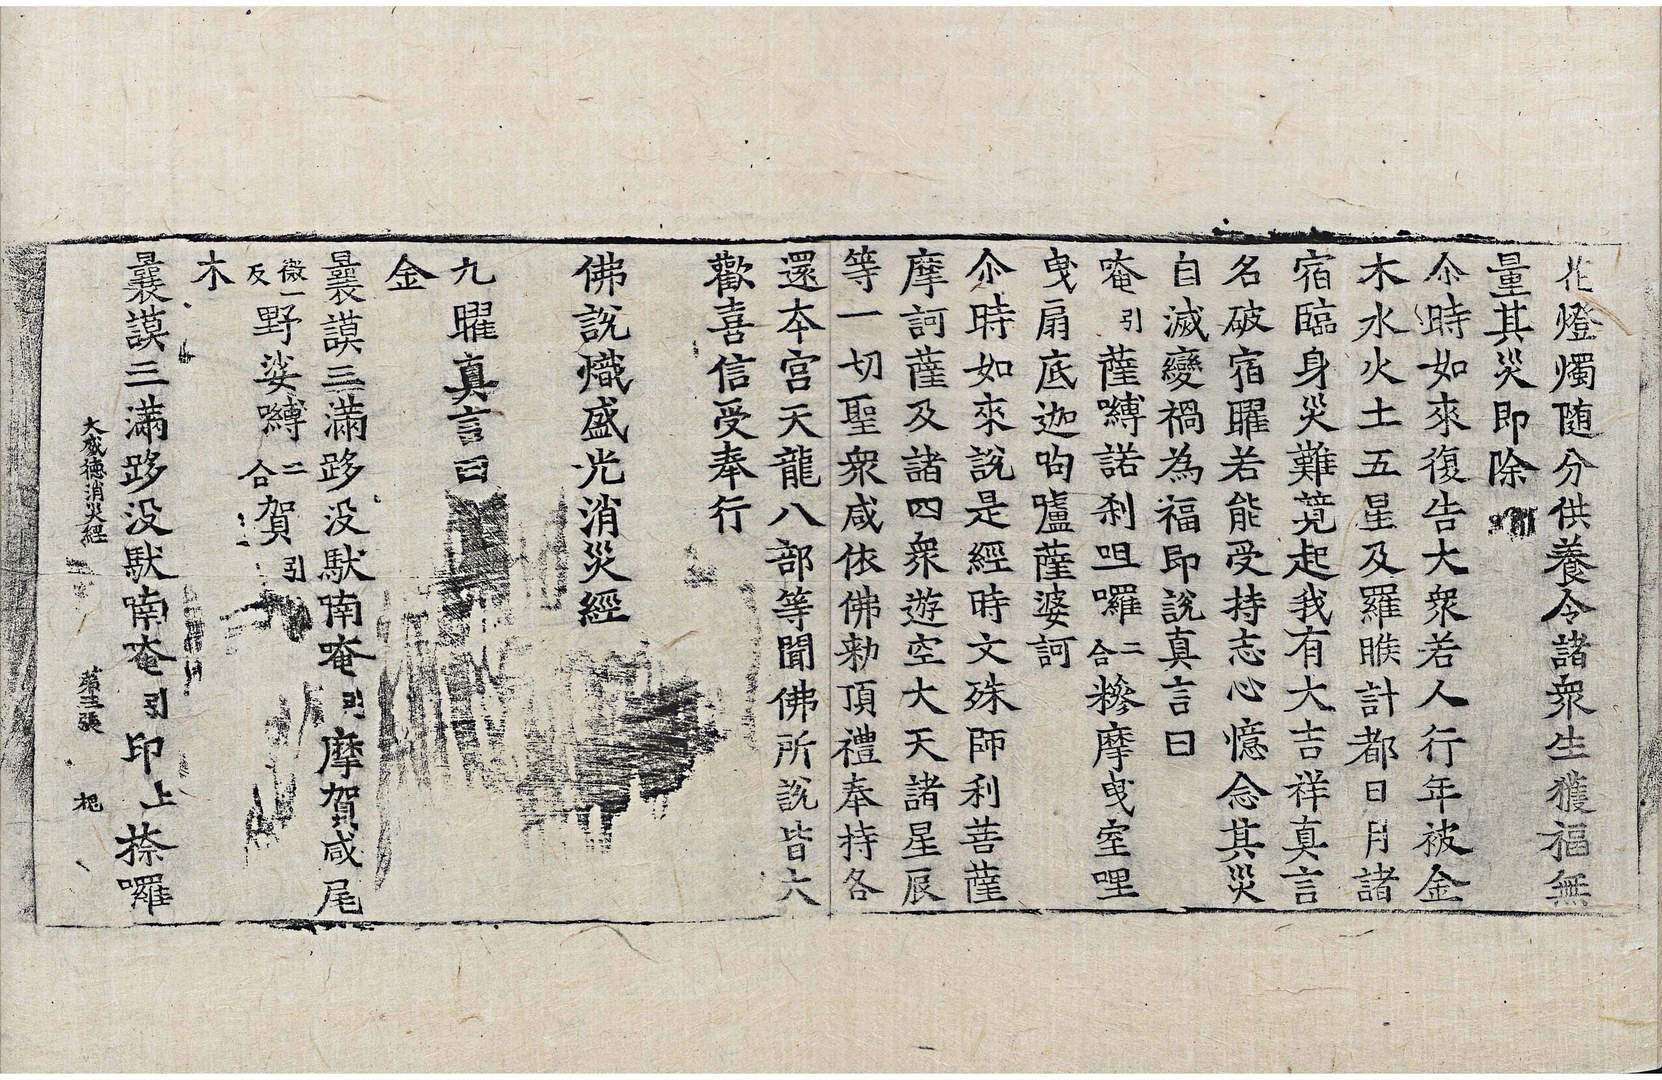 花燈燭随分供養令諸衆生獲福無
量其災即除
尒時如來復告大衆若人行年被金
木水火土五星及羅睺計都日月諸
宿臨身災難競起我有大吉祥真言
名破宿曜若能受持志心憶念其災
自滅變禍為福即說真言曰
唵引薩嚩諾刹呾囉二合糝摩曳室哩
曳扇底迦呴嚧薩婆訶
尒時如來說是經時文殊師利菩薩
摩訶薩及諸四衆遊空大天諸星辰
等一切聖衆咸依佛勑頂禮奉持各
還本宮天龍八部等聞佛所說皆大
歡喜信受奉行
佛說熾盛光消災經
九曜真言曰
金
曩謨三滿跢没馱喃唵引摩賀咸尾
微一反野娑嚩二合賀引
木
曩謨三滿跢没馱喃唵引印上捺囉
大威德消災經 第三張